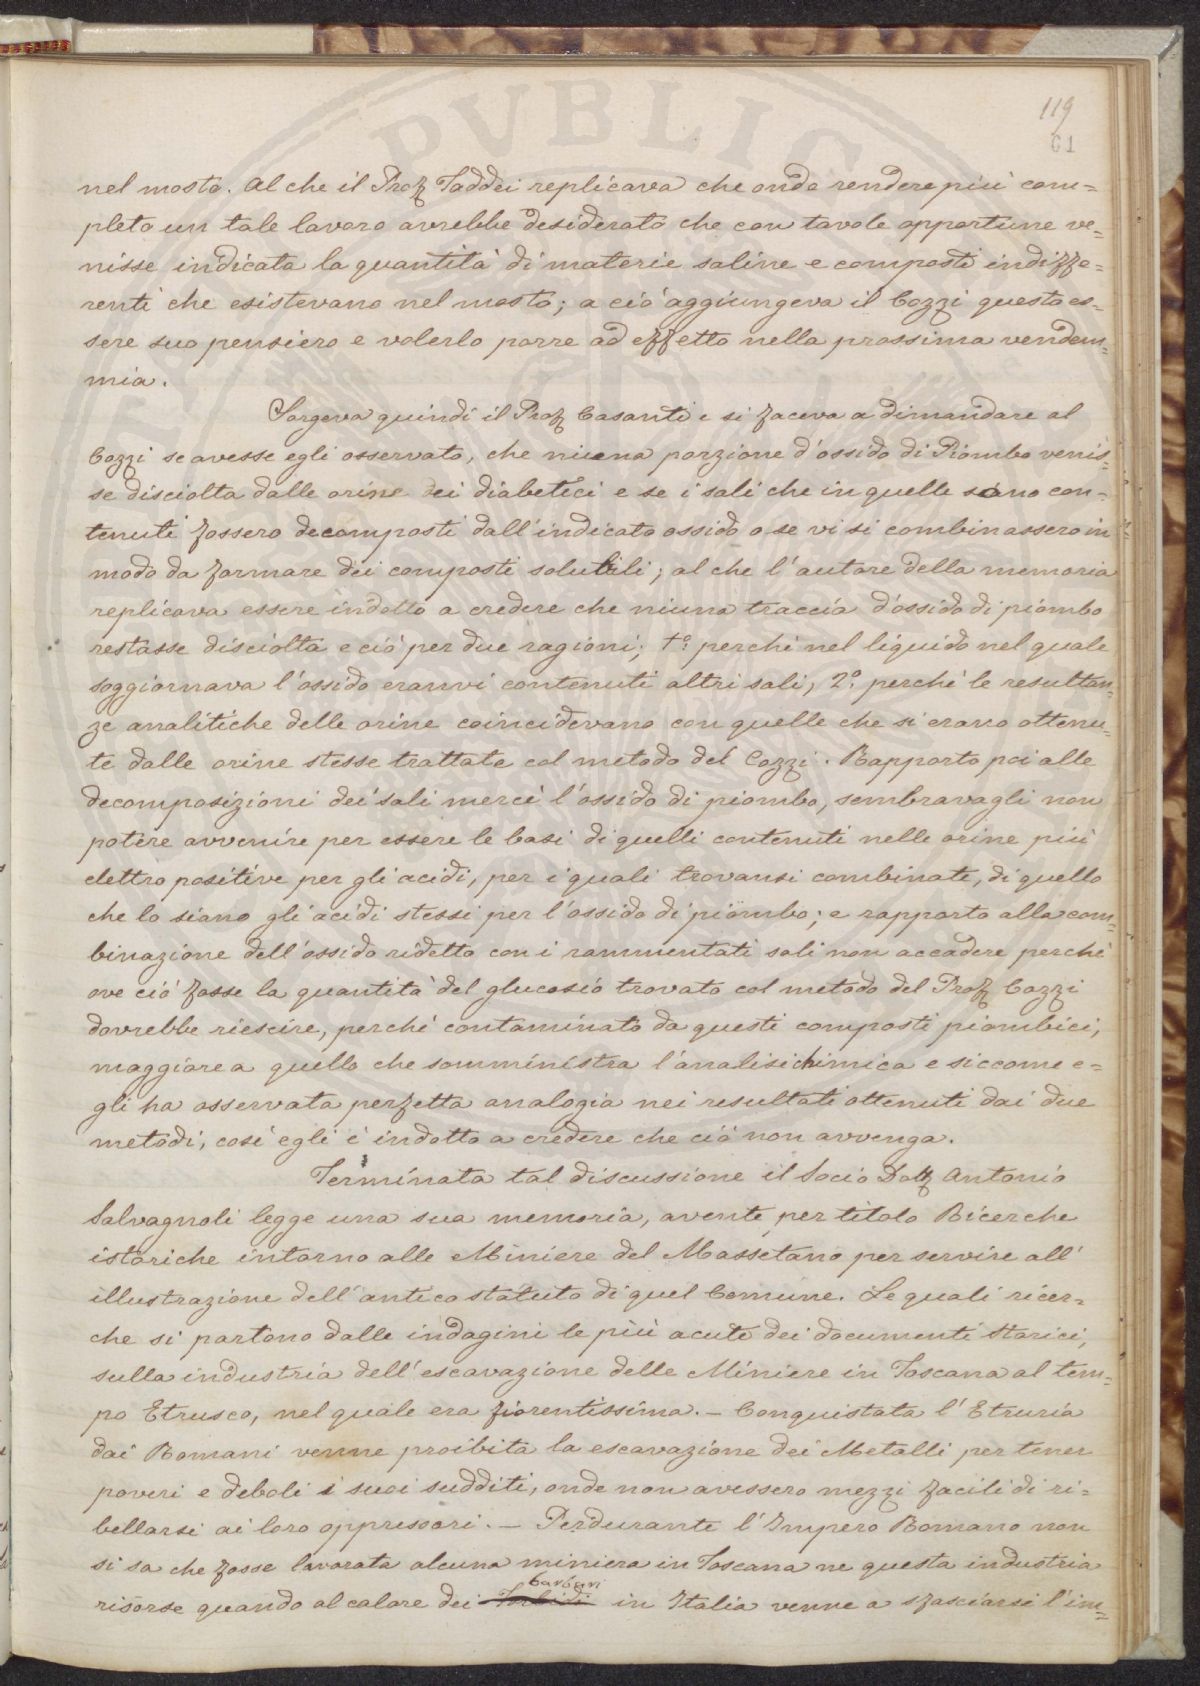 PVBLIC
119
61
nel mosto. Al che il Prof. Taddei replicava che onde rendere più com=
pleto un tale lavoro avrebbe desiderato che con tavole opportune ve=
nisse indicata la quantità di materie saline e composti indiffe=
renti che esistevano nel mosto; a ciò aggiungeva il Cozzi questo es=
sere suo pensiero e volerlo porre ad effetto nella prossima vendem=
mia.
Sorgeva quindi il Prof. Casanti e si faceva a dimandare al
Cozzi se avesse egli osservato, che niuna porzione d'ossido di Piombo venis=
se disciolta dalle orine dei diabetici e se i sali che in quelle sono con=
tenuti fossero decomposti dall'indicato ossido o se vi si combinassero in
modo da formare dei composti solubili; al che l'autore della memoria
replicava essere indotto a credere che niuna traccia d'ossido di piombo
restasse disciolta e ciò per due ragioni; 1º perchè nel liquido nel quale
soggiornava l'ossido eranvi contenuti altri sali, 2º perchè le resultan=
ze analitiche delle orine coincidevano con quelle che si erano ottenu=
te dalle orine stesse trattate col metodo del Cozzi. Rapporto poi alle
decomposizioni dei sali mercè l'ossido di piombo, sembravagli non
potere avvenire per essere le basi di quelli contenuti nelle orine più
elettro positive per gli acidi, per i quali trovansi combinate, di quello
che lo siano gli acidi stessi per l'ossido di piombo; e rapporto alla com=
binazione dell'ossido ridetto con i rammentati sali non accadere perchè
ove ciò fosse la quantità del glucosio trovato col metodo del Prof. Cozzi
dovrebbe riescire, perchè contaminato da questi composti piombici,
maggiore a quello che somministra l'analisi chimica e siccome e=
gli ha osservata perfetta analogia nei resultati ottenuti dai due
metodi, così egli è indotto a credere che ciò non avvenga.
Terminata tal discussione il Socio Dott. Antonio
Salvagnoli legge una sua memoria, avente per titolo Ricerche
istoriche intorno alle Miniere del Massetano per servire all'
illustrazione dell'antico statuto di quel Comune. Le quali ricer=
che si partono dalle indagini le più acute dei documenti storici,
sulla industria dell'escavazione delle Miniere in Toscana al tem=
po Etrusco, nel quale era fiorentissima. – Conquistata l'Etruria
dai Romani venne proibita la escavazione dei Metalli per tener
poveri e deboli i suoi sudditi, onde non avessero mezzi facili di ri=
bellarsi ai loro oppressori. – Perdurante l'Impero Romano non
si sa che fosse lavorata alcuna miniera in Toscana ne questa industria
barbari
risorse quando al calare dei in Italia venne a sfasciarsi l'im=